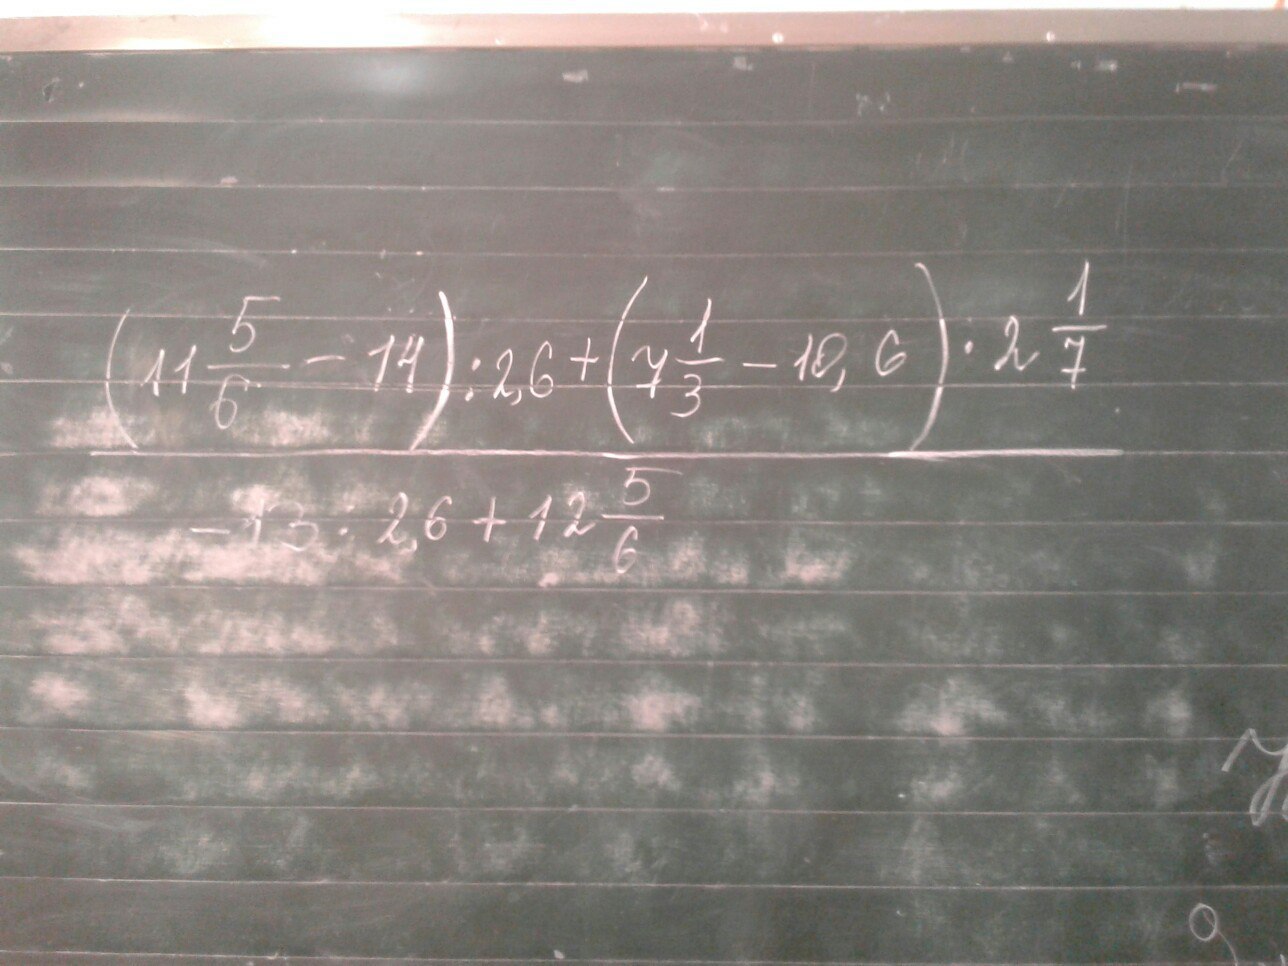 (11 5/6 - 14) : 2,6 + (7 1/3 - 18,6) · 2 1/7
-13 · 2,6 + 12 5/6